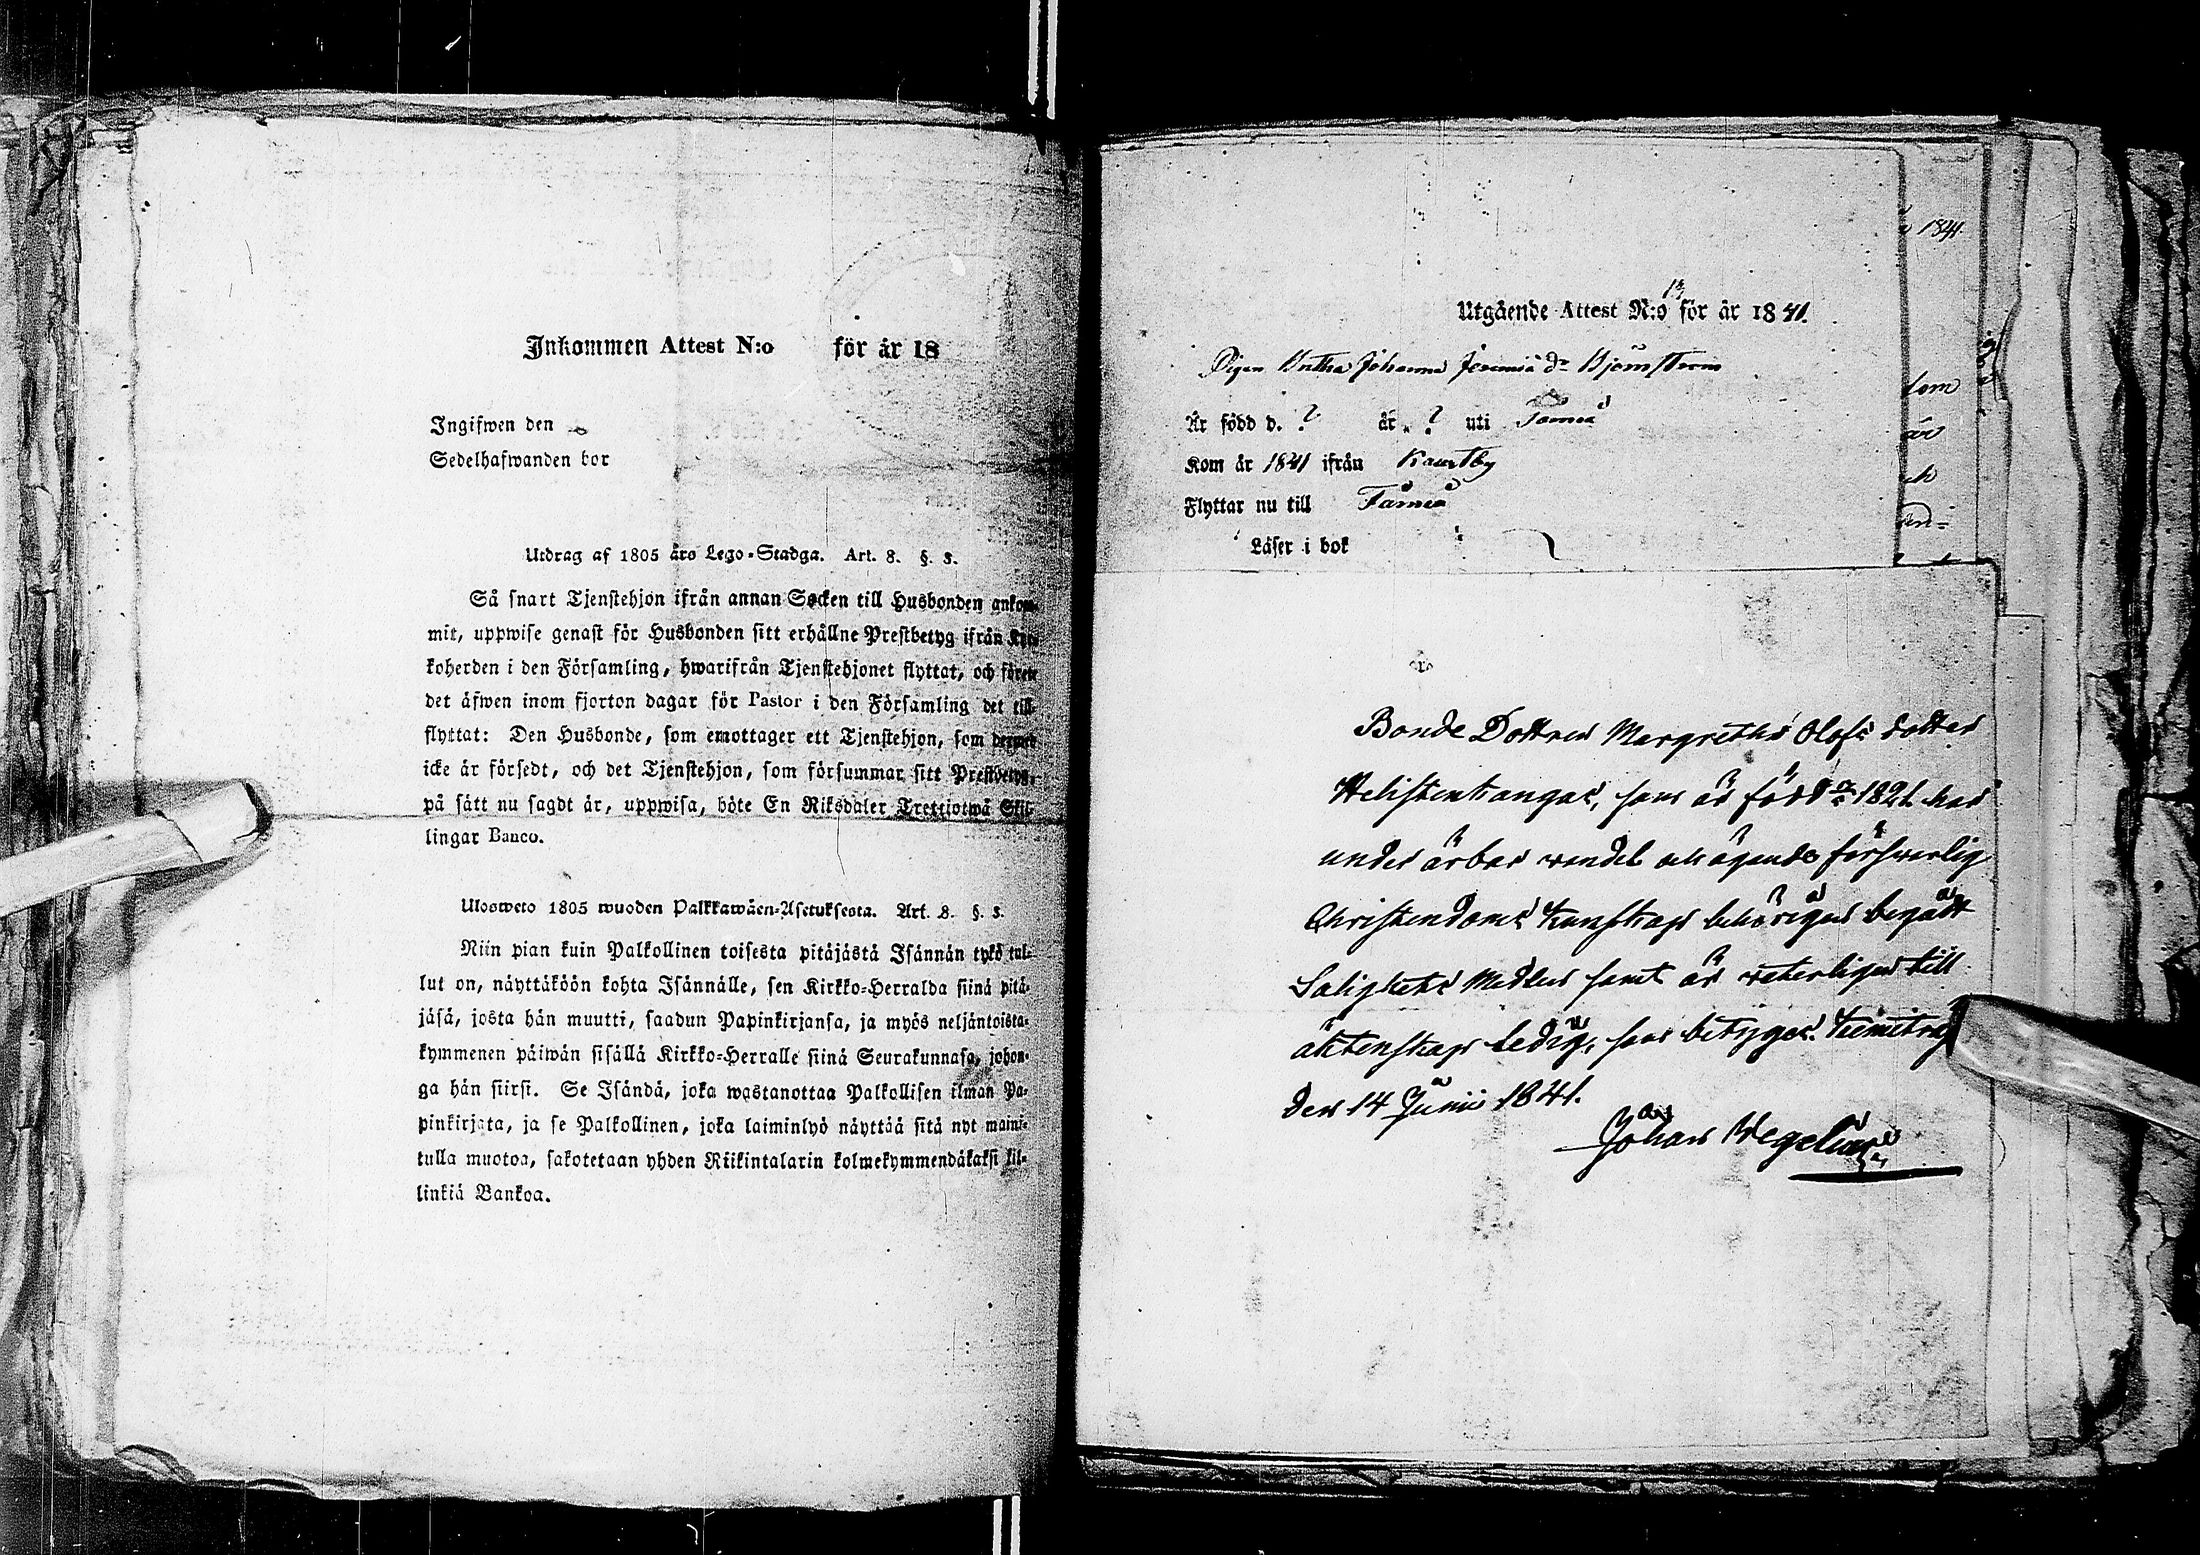 Inkommen Attest N:o för år 18
Ingifwen den
Sedelhafwanden bor
Utdrag af 1805 års Lego-Stadga. Art. 8. §. 3.
Så snart Tjenstehjon ifrån annan Socken till Husbonden ankom-
mit, uppwise genast för Husbonden sitt erhållne Prestbetyg ifrån Kyr-
koherden i den Församling, hwarifrån Tjenstehjonet flyttat, och förete
det äfwen inom fjorton dagar för Pastor i den Församling det till-
flyttat: Den Husbonde, som emottager ett Tjenstehjon, som dermed
icke är försedt, och det Tjenstehjon, som försummar sitt Prestbetyg,
på sätt nu sagdt är, uppwisa, böte En Riksdaler Trettiotwå Skil-
lingar Banco.
Ulosweto 1805 wuoden Palkkawäen-Asetuksesta. Art. 8. §. 3.
Niin pian kuin Palkollinen toisesta pitäjästä Isännän tykö tul-
lut on, näyttäköön kohta Isännälle, sen Kirkko-Herralda siinä pitä-
jäsä, josta hän muutti, saadun Papinkirjansa, ja myös neljäntoista-
kymmenen päiwän sisällä Kirkko-Herralle siinä Seurakunnasa, johon-
ga hän siirsi. Se Isändä, joka wastanottaa Palkollisen ilman Pa-
pinkirjata, ja se Palkollinen, joka laiminlyö näyttää sitä nyt maini-
tulla muotoa, sakotetaan yhden Riikintalarin kolmekymmendäkaksi kil-
linkiä Bankoa.
Utgående Attest N:o för år 1841.
Pigan Johanna d:r Björnström
Är född d. ? år ? uti Torneå
Kom år 1841 ifrån
Flyttar nu till Torneå
Läser i bok
1841
Bonde Dottren Margretha Olofs dotter
som är född 1821 har
under ärbar wandel och ägande förswarlig
Christendoms kunskap behörigen begått
Salighets Medlen samt är weterligen till
äktenskap ledig, som betygas. Kemiträsk
den 14 Junii 1841.
Johan Wegelius